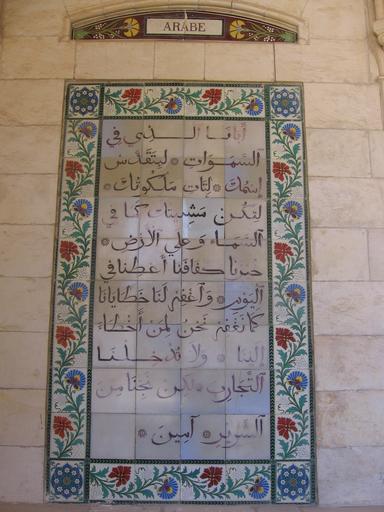 ARABE
أبانا الذي في
السموات * ليتقدس
اسمك * ليأت ملكوتك *
لتكن مشيئتك كما في
السماء وعلى الأرض *
خبزنا كفافنا أعطنا في
اليوم * وآغفر لنا خطايانا
كما نغفر نحن لمن أخطأ
إلينا * ولا تدخلنا
التجارب * لكن نجنا من
الشرير * آمين *